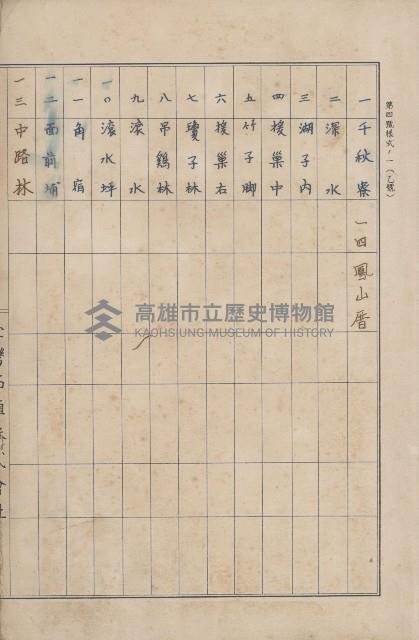 第四號樣式ノ一（乙號）
一 千秋寮
一四 鳳山厝
二 深水
三 湖子內
四 援巢中
五 竹子脚
六 援巢右
七 瓊子林
八 吊鷄林
九 滾水
一〇 滾水坪
一一 角宿
一二 面前埔
一三 中路林
高雄市立歷史博物館
KAOHSIUNG MUSEUM OF HISTORY